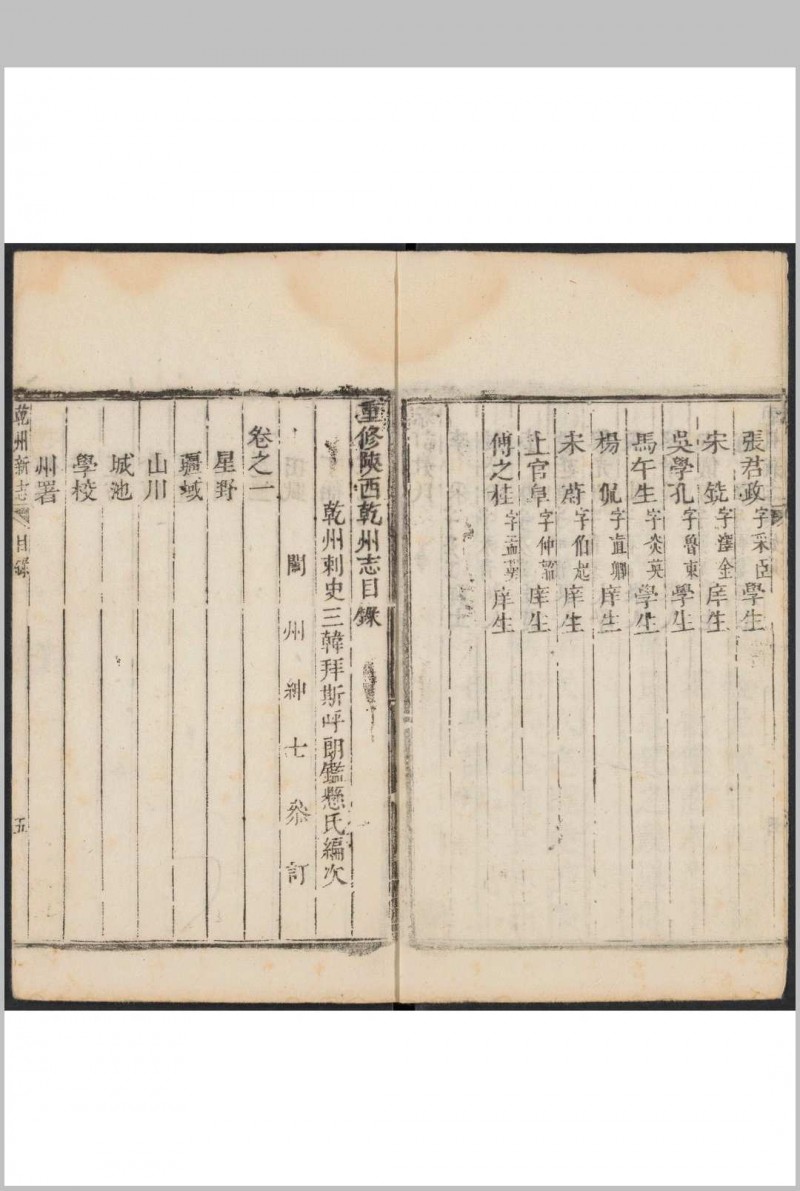 張君政 字采臣 學生
宋 銑 字澤金 庠生
吳學孔 字魯東 學生
馬午生 字炎英 學生
楊 侃 字直卿 庠生
朱 蔚 字伯起 庠生
上官阜 字仲 庠生
傅之桂 字孟 庠生
重修陝西乾州志目錄
乾州刺史三韓拜斯呼朗鑑懸氏編次
闔州紳士叅訂
卷之一
星野
疆域
山川
城池
學校
州署
乾州新志 目錄 五